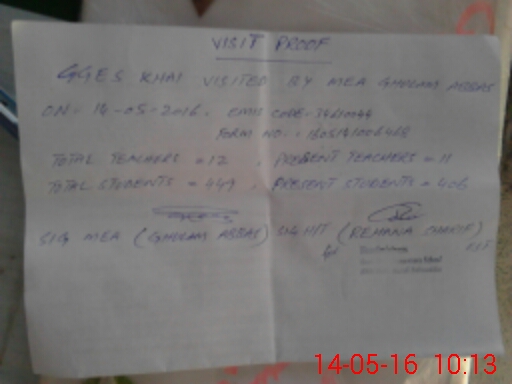 VISIT PROOF
GGES KHAI VISITED BY MEA GHULAM ABBAS
ON - 14-05-2016. EMIS CODE - 34610044
FORM NO. :
TOTAL TEACHERS = 12 , PRESENT TEACHERS = 11
TOTAL STUDENTS = 449 , PRESENT STUDENTS = 406
SIG MEA (GHULAM ABBAS) SIG H/T (REHANA SHARIF)
14-05-16 10:13